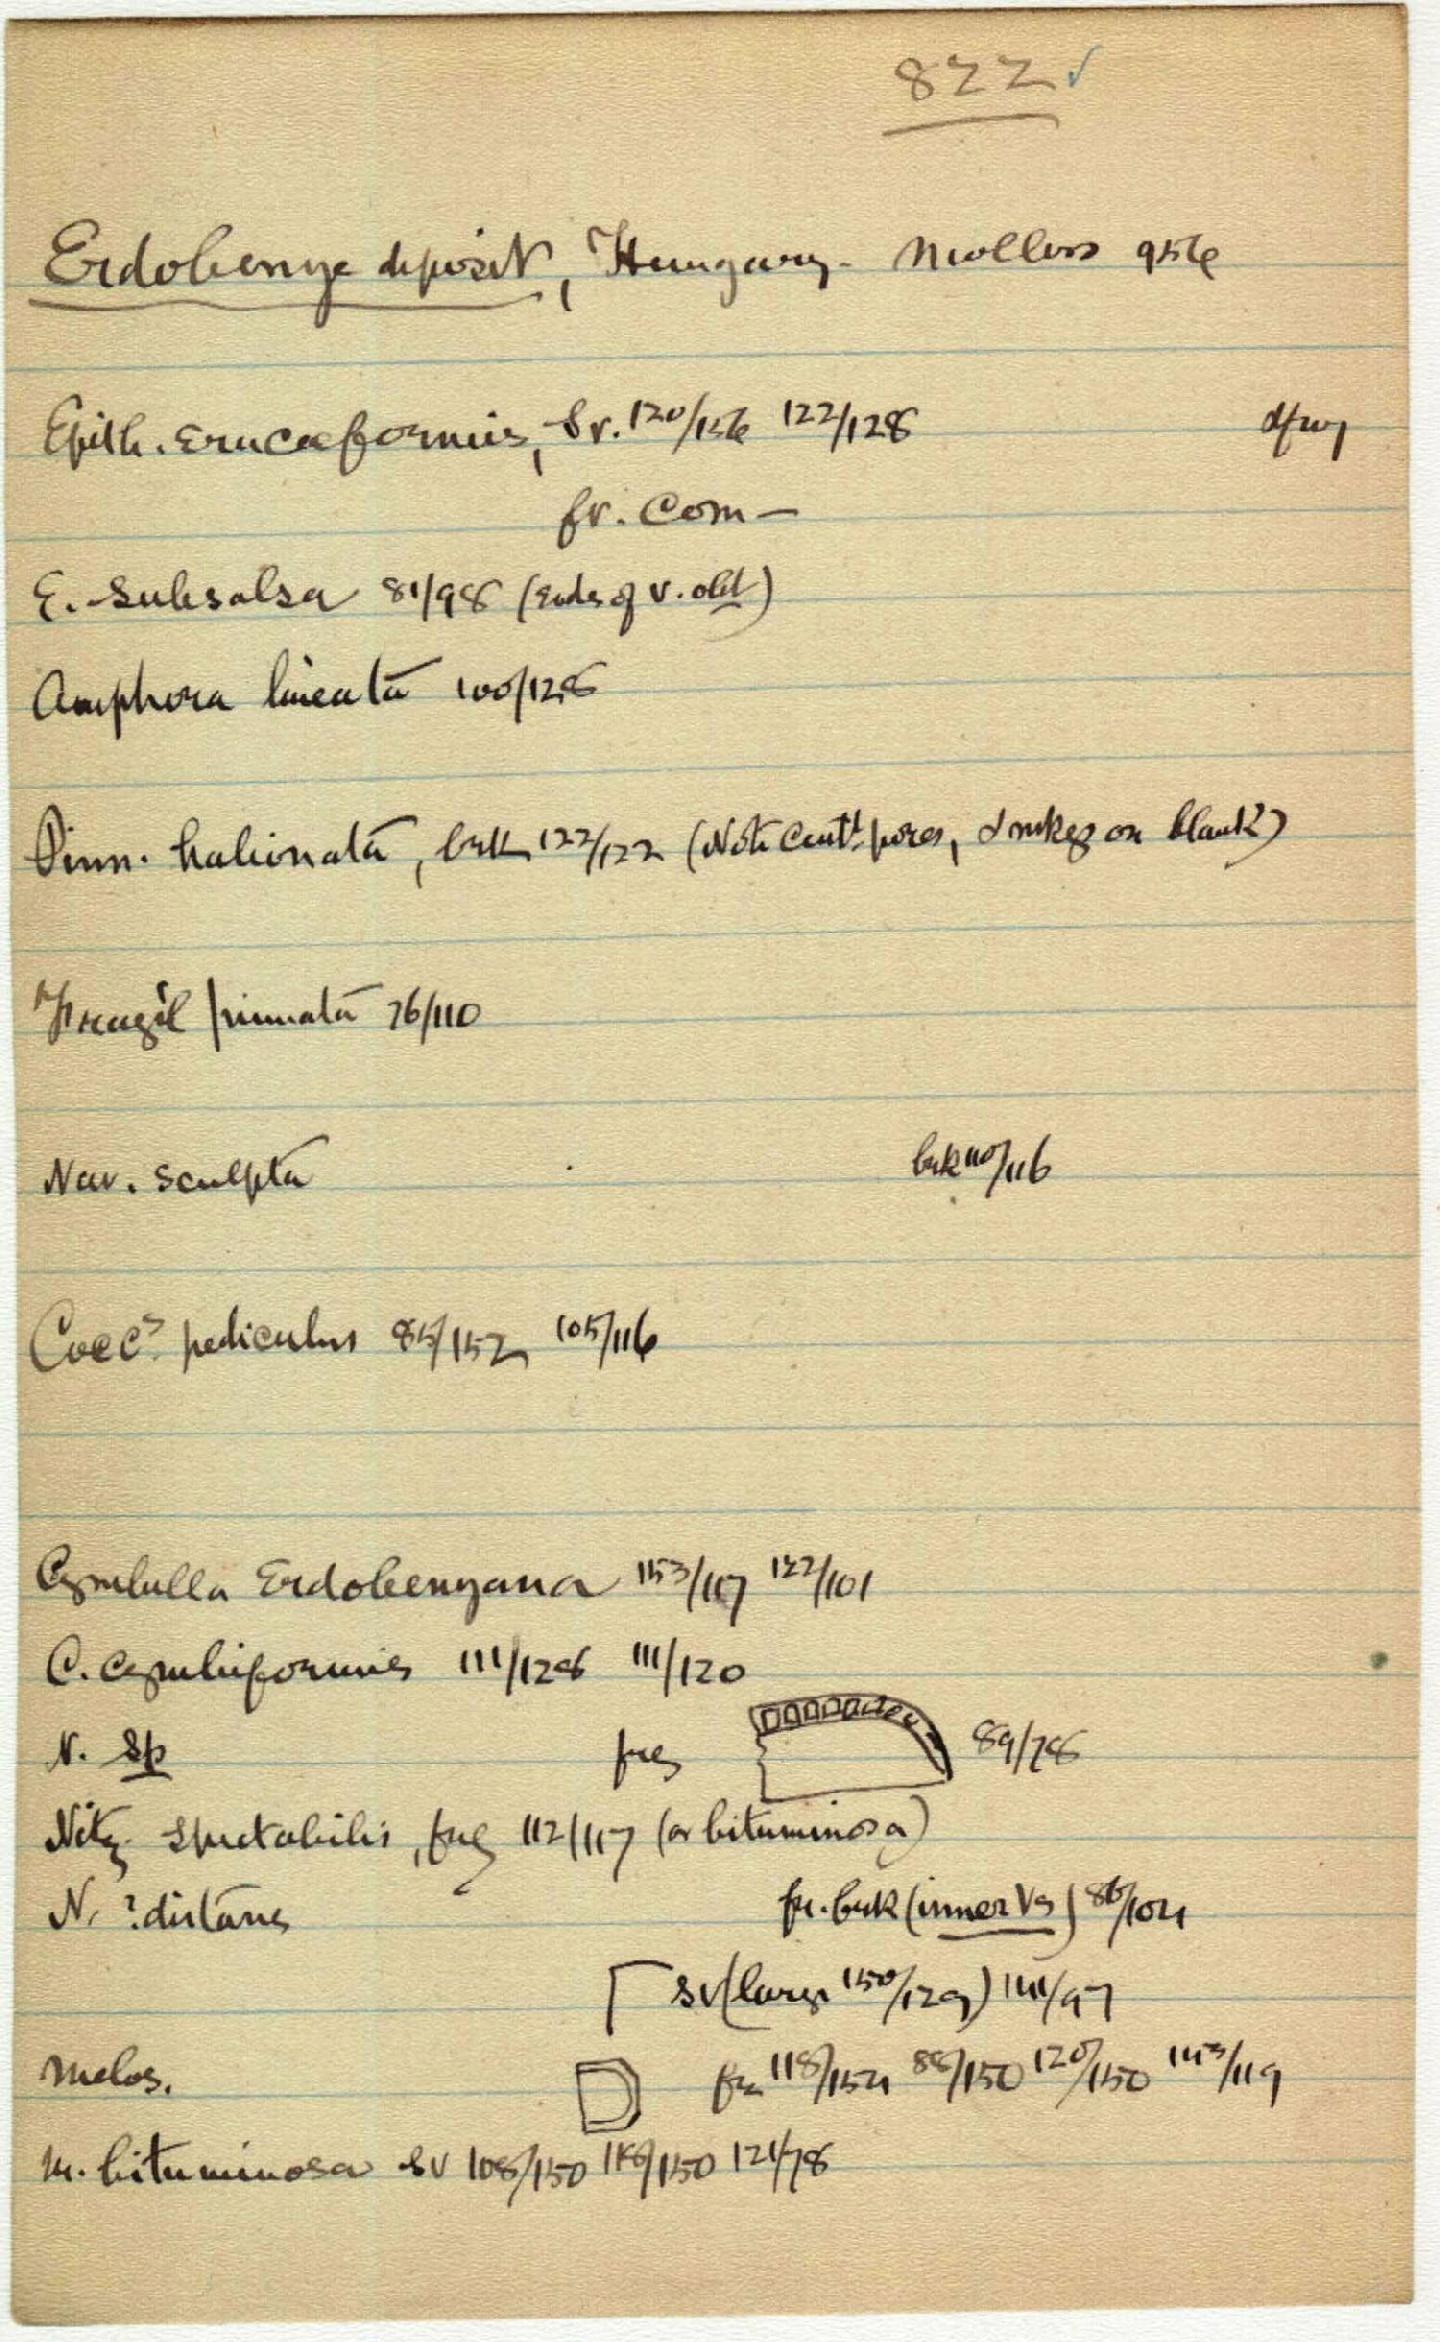 822 ✓
Erdobenye deposit, Hungary - Mollers 956
Epith. erucaeformis, Sv. 120/156 122/128
fr. com -
E. subsalsa 81/98 (ends of v. old)
Amphora lineata 100/128
Pinn. halionata, brk 122/122 (Note centl. pores, on blank)
Fragil pinnata 76/110
Nav. sculpta brk 110/116
Cocc? pediculus 85/152 105/116
Cymbella Erdobenyana 153/117 122/101
C. cymbiformis 111/128 111/120
N. sp frg 89/78
Nitz. spectabilis, frg 112/117 (or bituminosa)
N. ?distans fr. brk (inner Vs) 86/104
sv (large 150/129) 141/97
Melos. 118/154 88/150 120/150 143/119
M. bituminosa sv 108/150 118/150 121/78